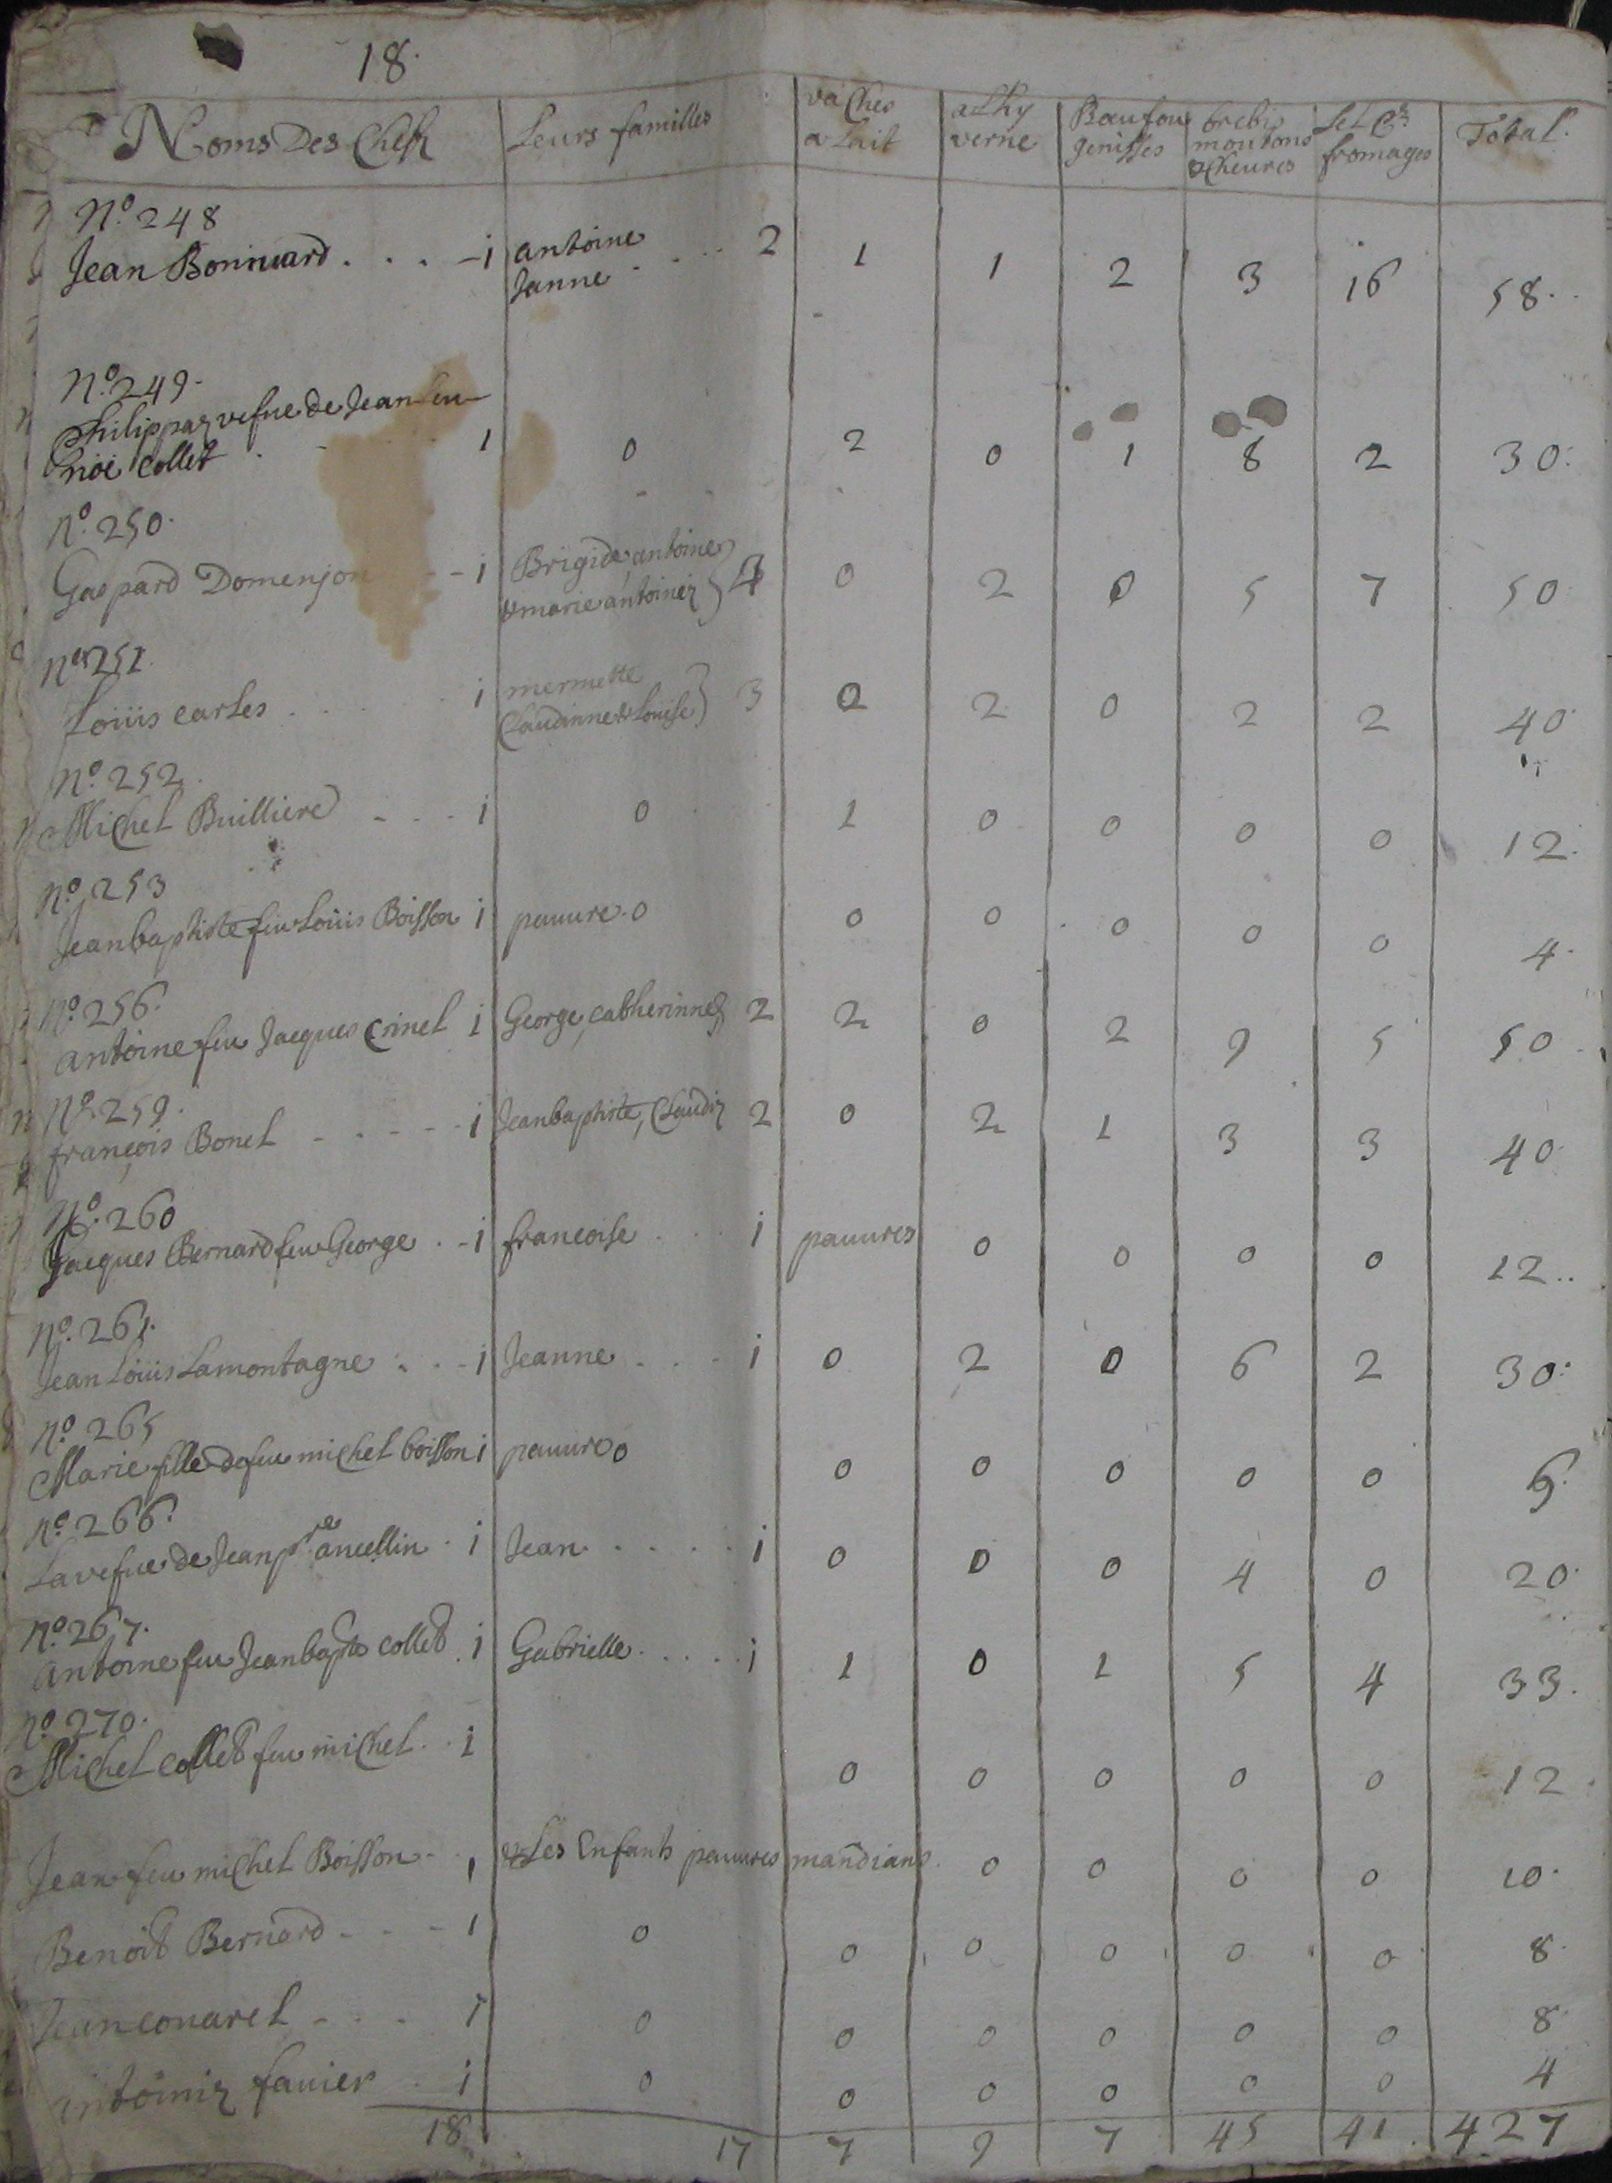 18.
Noms Des Chefs Leurs familles vaches a Lait a Lhyverne Bœuf ou genisses brebis moutons & Cheures Sel Et fromages Total.
N.º 248
Jean Bonnuard . . . - i antoine Janne . . . . 2 1 1 2 3 16 58.
N.º 249.
philippaz vefue de Jean feu
noë Collet . - 1 0 2 0 1 8 2 30.
N.º 250.
Gaspard Domenjon - - i Brigide antoine
& marie antoinez } 4 0 2 0 5 7 50
Nº 251.
Loüis carles . . . . i mermette
Claudinne & Louise } 3 0 2 0 2 2 40
N.º 252.
Michel Buillierd - . . - i 0 1 0 0 0 0 12.
N.º 253
Jeanbaptiste feu Loüis Boisson i pauure . 0 0 0 0 0 0 4.
N.º 256.
antoine feu Jacques Crinel i George, catherinne 2 2 0 2 9 5 50
N.º 259.
françois Bonel - . - - - i Jeanbaptiste, Claudiz 2 0 2 1 3 3 40
N.º 260
Jacques Bernard feu George . - i francoise . . . i pauures 0 0 0 0 12..
N.º 261.
Jean Loüis Lamontagne . . - i Jeanne . . . - i 0 2 0 6 2 30.
N.º 265
Marie fille de feu michel boisson i pauure 0 0 0 0 0 0 6.
N.º 266.
La vefue de Jean pre ancellin . i Jean . . . . . i 0 0 0 4 0 20.
N.º 267.
antoine feu Jeanbapte collet . i Gabrielle . . . . . i 1 0 1 5 4 33.
N.º 270.
Michel collet feu michel . . i 0 0 0 0 0 12.
Jean feu michel Boisson - . 1 & Ses Enfants pauures mandians. 0 0 0 0 10.
Benoit Bernard - . - - 1 0 0 0 0 0 0 8.
Jean couarel - . . . 1 0 0 0 0 0 0 8
antoiniz fauier . i 0 0 0 0 0 0 4
18 17 7 9 7 45 41 427